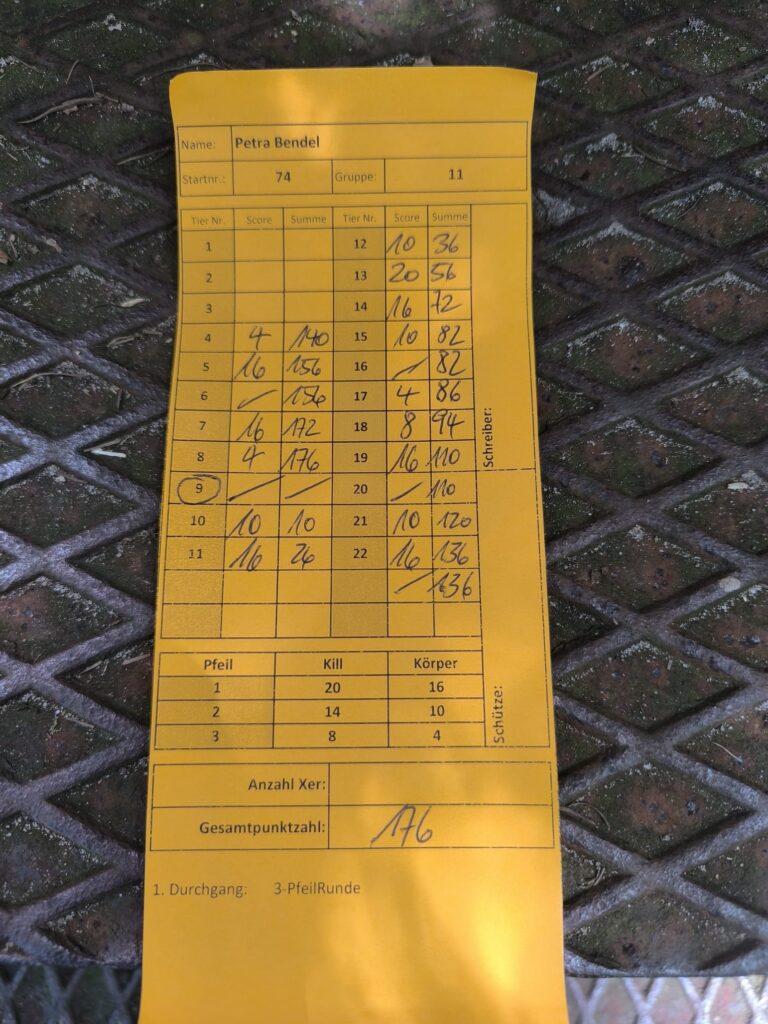 Name: Petra Bendel
Startnr.: 74 Gruppe: 11
Tier Nr. Score Summe Tier Nr. Score Summe
1 12 10 36
2 13 20 56
3 14 16 72
4 4 140 15 10 82
5 16 156 16 / 82
6 / 156 17 4 86
7 16 172 18 8 94
8 4 176 19 16 110
9 / / 20 / 110
10 10 10 21 10 120
11 16 26 22 16 136
/ 136
Schreiber:
Schütze:
Pfeil Kill Körper
1 20 16
2 14 10
3 8 4
Anzahl Xer:
Gesamtpunktzahl: 176
1. Durchgang: 3-PfeilRunde